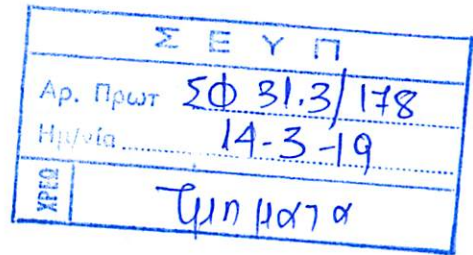 Σ Ε Υ Π
Αρ. Πρωτ ΣΦ 31.3/178
Ημ/νία 14-3-19
ΧΡΕΩ Τμηματα